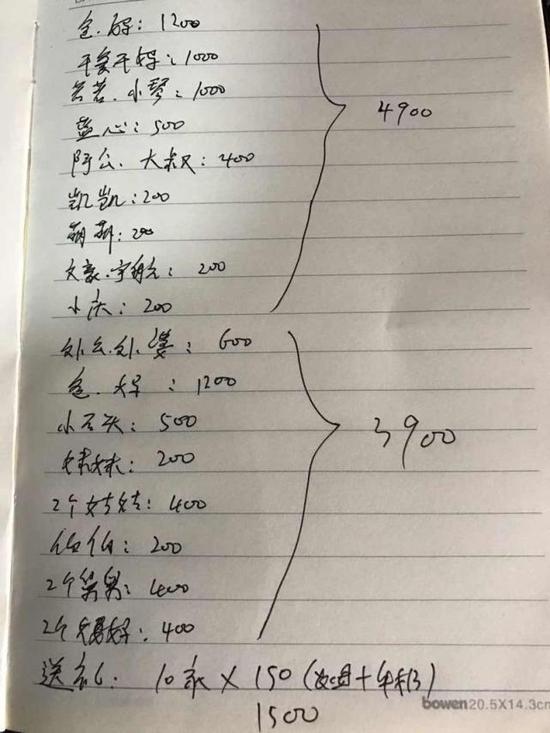 爸.妈: 1200
干爹干妈: 1000
芸芸.小琴: 1000
蓝心: 500
阿公.大叔: 400
凯凯: 200
萌萌: 200
文豪.宇航: 200
小庆: 200
4900
外公.外婆: 600
爸.妈: 1200
小石头: 500
妹妹: 200
2个姑姑: 400
伯伯: 200
2个舅舅: 400
2个舅妈: 400
3900
送礼: 10家 × 150 (烟+牛奶)
1500
bowen 20.5X14.3cm